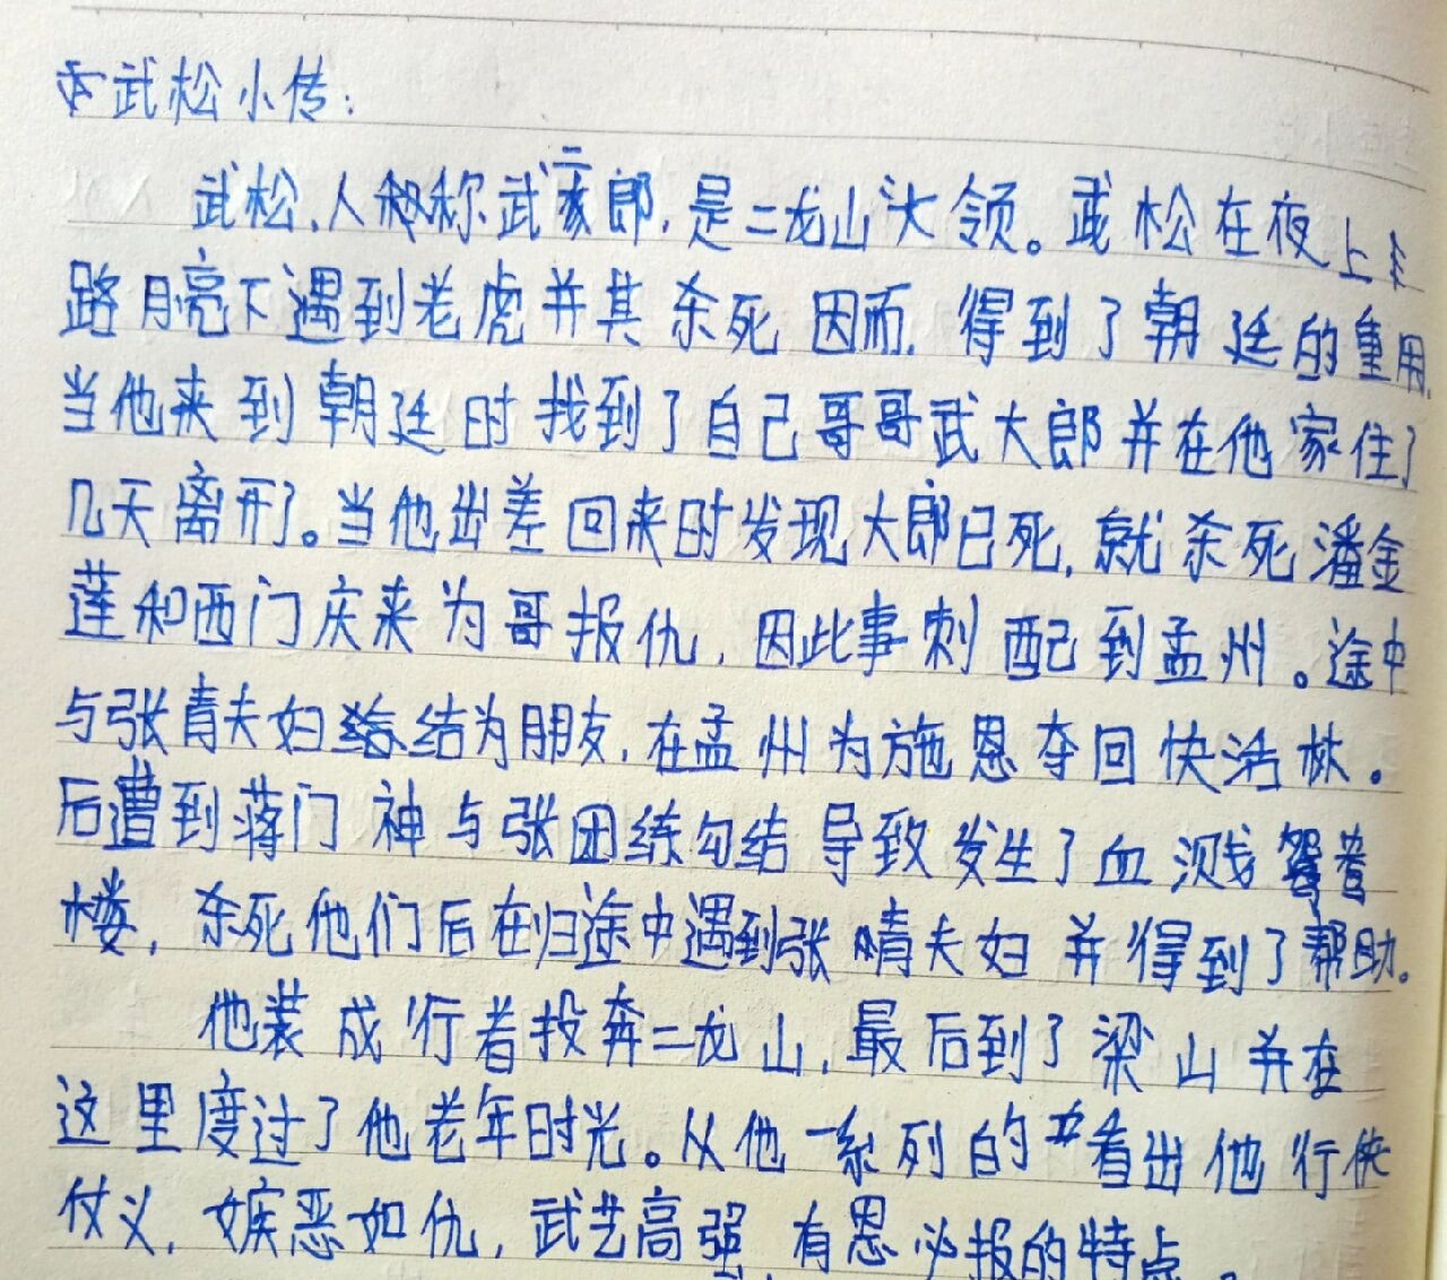 武松小传：
武松,人称武二郎,是二龙山大领。武松在夜上
路月亮下遇到老虎并其杀死因而,得到了朝廷的重用,
当他来到朝廷时找到了自己哥哥武大郎并在他家住了
几天离开了。当他出差回来时发现大郎已死,就杀死潘金
莲和西门庆来为哥报仇,因此事刺配到孟州。途中
与张青夫妇结为朋友,在孟州为施恩夺回快活林。
后遭到蒋门神与张团练勾结导致发生了血溅鸳鸯
楼,杀死他们后在归途中遇到张晴夫妇并得到了帮助。
他装成行者投奔二龙山,最后到了梁山并在
这里度过了他老年时光。从他一系列的看出他行侠
仗义,嫉恶如仇,武艺高强,有恩必报的特点。